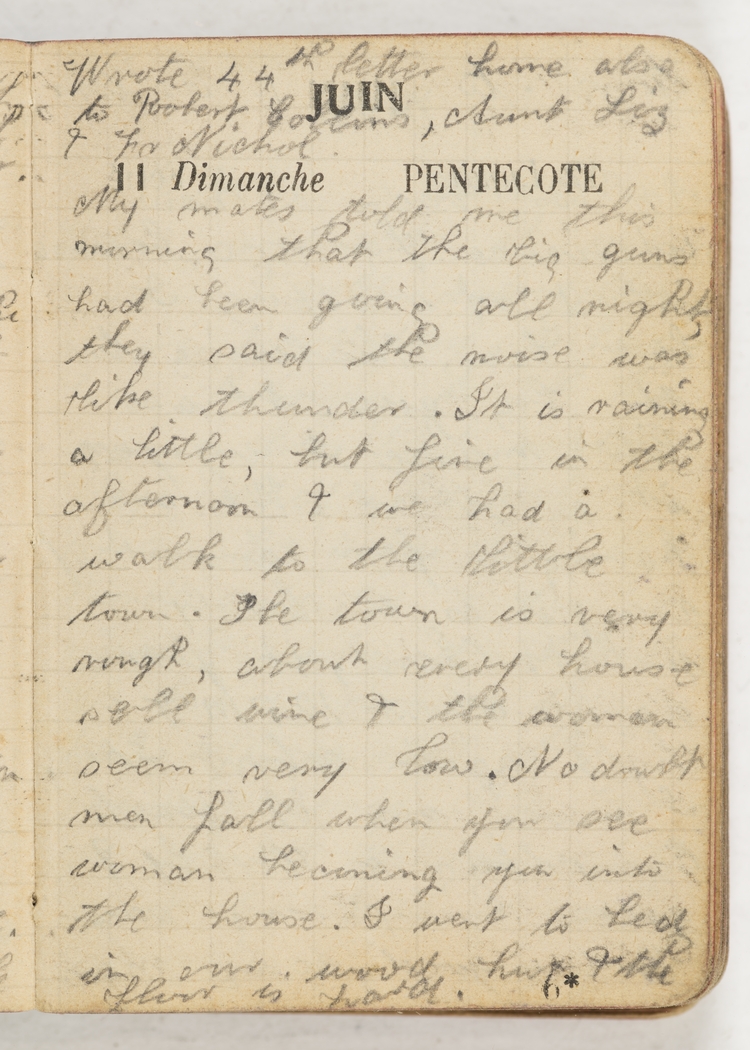 Wrote 44th letter home also
JUIN
to Robert Collins, Aunt Liz
& Fr Nichol.
11 Dimanche PENTECOTE
My mates told me this
morning that the big guns
had been going all night,
they said the noise was
like thunder. It is raining
a little, but fine in the
afternoon & we had a
walk to the little
town. The town is very
rough, about every house
sell wine & the woman
seem very low. No doubt
men fall when you see
woman becoming you into
the house. I went to bed
in our wood hut & the
floor is hard.